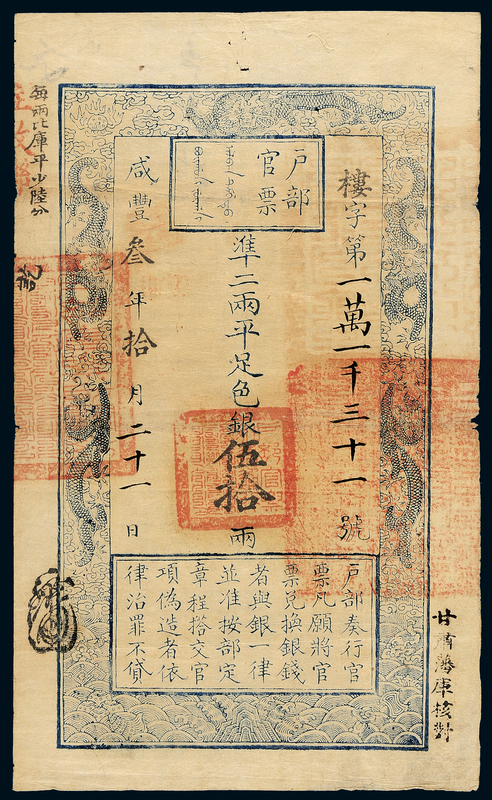 户部
官票
樓字第一萬一千三十一號
準二兩平足色銀伍拾兩
咸豐叁年拾月二十一日
户部奏行官
票凡願將官
票兑換銀錢
者與銀一律
並准按部定
章程搭交官
項偽造者依
律治罪不貸
每兩比庫平少陸分
甘肅藩庫核對